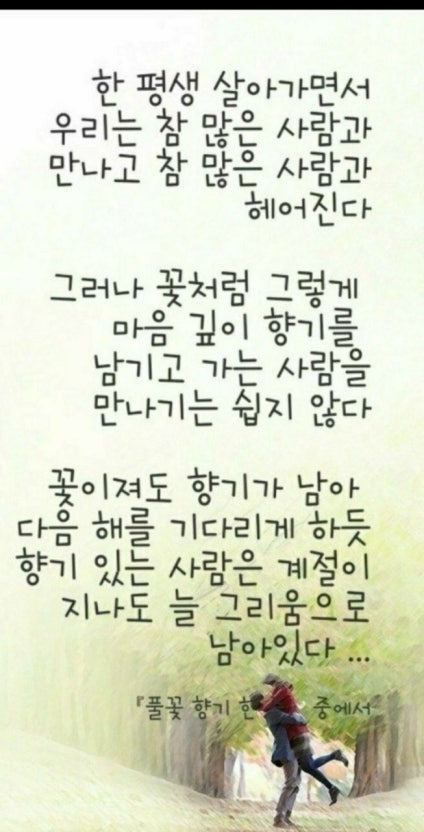 한 평생 살아가면서
우리는 참 많은 사람과
만나고 참 많은 사람과
헤어진다
그러나 꽃처럼 그렇게
마음 깊이 향기를
남기고 가는 사람을
만나기는 쉽지 않다
꽃이져도 향기가 남아
다음 해를 기다리게 하듯
향기 있는 사람은 계절이
지나도 늘 그리움으로
남아있다 ...
『풀꽃 향기 한 중에서